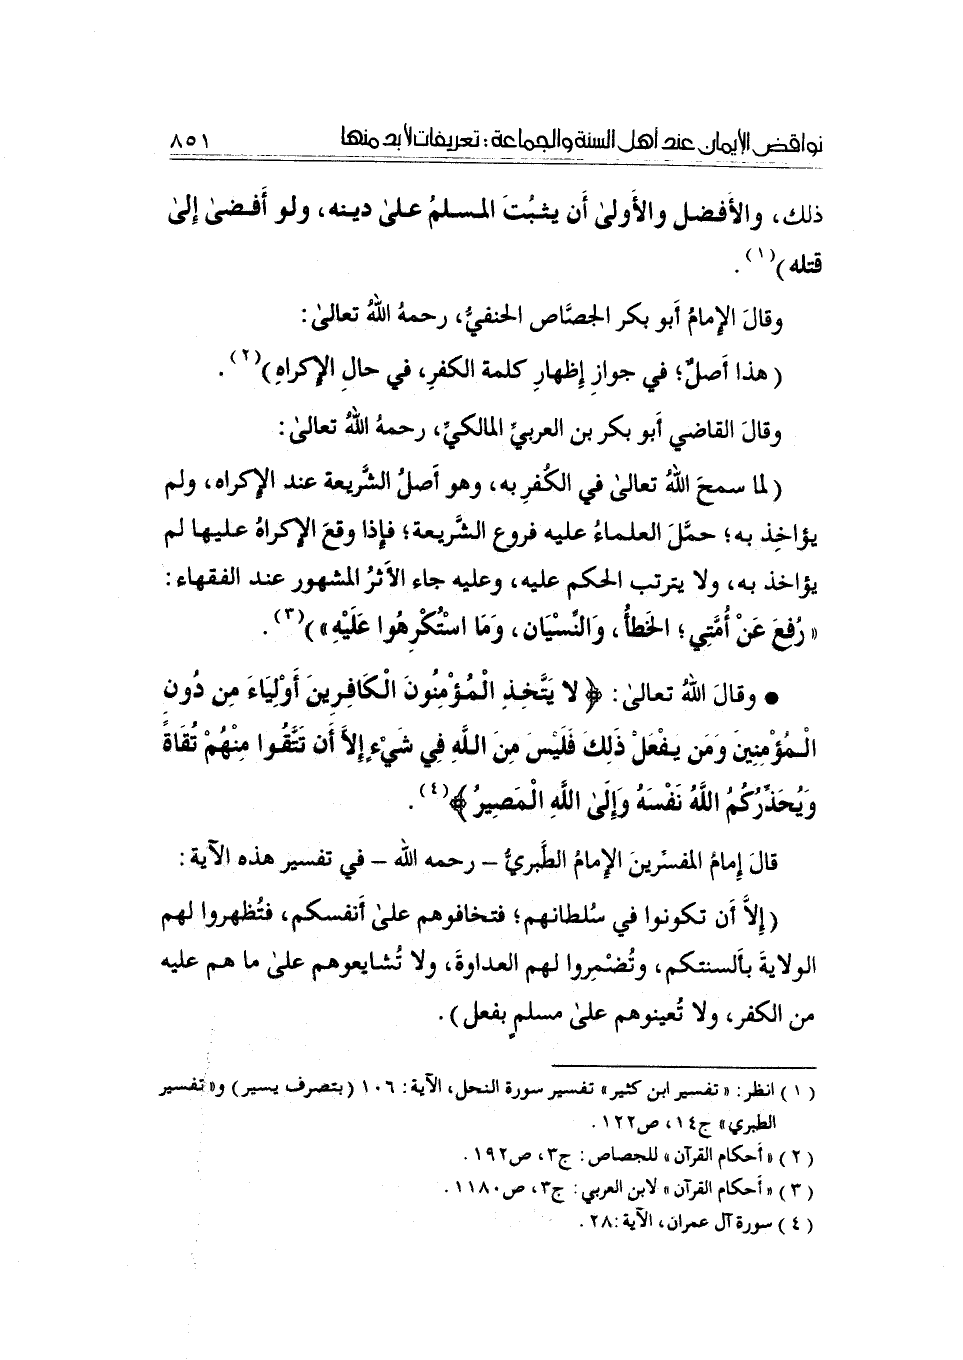 نواقض الإيمان عند أهل السنة والجماعة : تعريفات لابد منها ٨٥١
ذلك، والأفضل والأولىٰ أن يثبُتَ المسلمُ علىٰ دينه، ولو أفضىٰ إلىٰ
قتله)(١).
وقالَ الإمامُ أبو بكر الجصَّاص الحنفيُّ، رحمهُ اللهُ تعالىٰ:
(هذا أصلٌ؛ في جوازِ إظهارِ كلمة الكفرِ، في حالِ الإكراهِ)(٢).
وقالَ القاضي أبو بكر بن العربيِّ المالكيِّ، رحمهُ اللهُ تعالىٰ:
(لما سمحَ اللهُ تعالىٰ في الكُفرِ به، وهو أصلُ الشَّريعة عند الإكراه، ولم
يؤاخِذ به؛ حمَّلَ العلماءُ عليه فروع الشَّريعة؛ فإذا وقعَ الإكراهُ عليها لم
يؤاخذ به، ولا يترتب الحكم عليه، وعليه جاء الأثرُ المشهور عند الفقهاء:
«رُفِعَ عَنْ أُمَّتِي؛ الخَطأُ، وَالنِّسْيَان، وَمَا اسْتُكْرِهُوا عَلَيْهِ»)(٣).
● وقالَ اللهُ تعالىٰ: ﴿لا يَتَّخِذِ الْمُؤْمِنُونَ الْكَافِرِينَ أَوْلِيَاءَ مِن دُونِ
الْمُؤْمِنِينَ وَمَن يَفْعَلْ ذَلِكَ فَلَيْسَ مِنَ اللَّهِ فِي شَيْءٍ إِلاَّ أَن تَتَّقُوا مِنْهُمْ تُقَاةً
وَيُحَذِّرُكُمُ اللَّهُ نَفْسَهُ وَإِلَىٰ اللَّهِ الْمَصِيرُ﴾(٤).
قالَ إمامُ المفسِّرينَ الإمامُ الطَّبريُّ – رحمه الله – في تفسير هذه الآية:
(إلاَّ أن تكونوا في سُلطانهم؛ فتخافوهم علىٰ أنفسكم، فتُظهروا لهم
الولايةَ بألسنتكم، وتُضْمِروا لهم العداوةَ، ولا تُشايعوهم علىٰ ما هم عليه
من الكفر، ولا تُعينوهم علىٰ مسلمٍ بفعل).
(١) انظر: «تفسير ابن كثير» تفسير سورة النحل، الآية: ١٠٦ (بتصرف يسير) و«تفسير
الطبري» ج١٤، ص١٢٢.
(٢) «أحكام القرآن» للجصاص: ج٣، ص١٩٢.
(٣) «أحكام القرآن» لابن العربي: ج٣، ص١١٨٠.
(٤) سورة آل عمران، الآية: ٢٨.